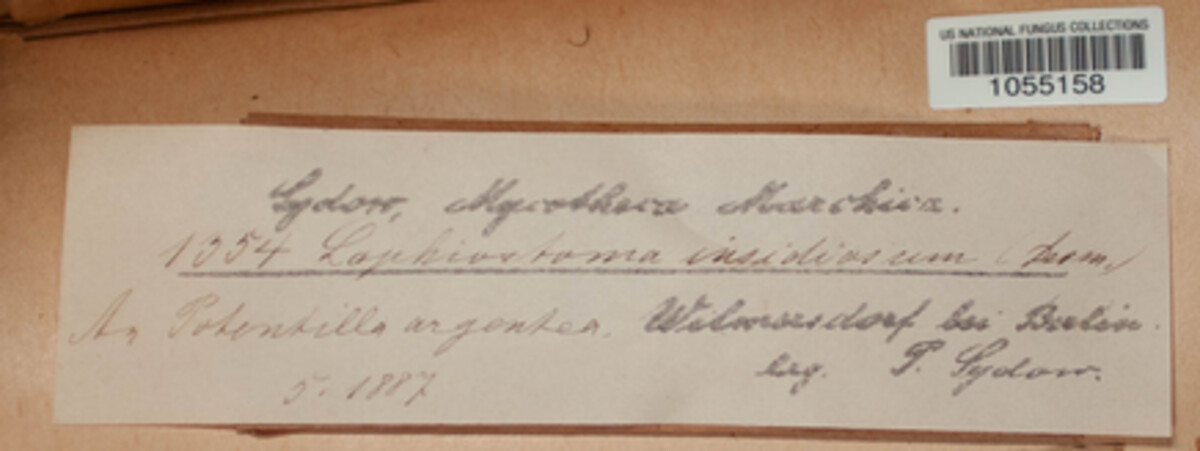 US NATIONAL FUNGUS COLLECTIONS
1055158
Sydow, Mycotheca Marchica.
1354 Lophiostoma insidiosum (Desm.)
An Potentilla argentea. Wilmersdorf bei Berlin.
5. 1887 leg. P. Sydow.